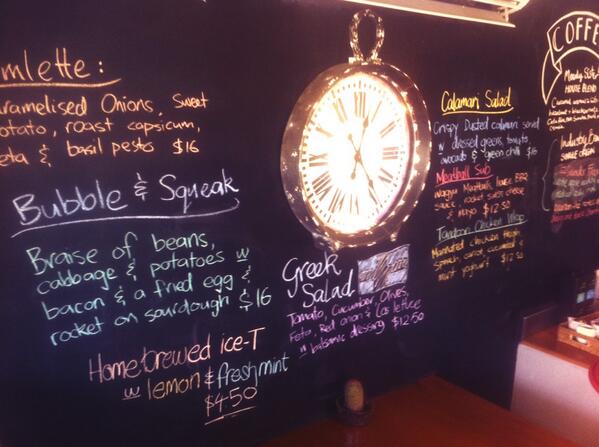 mlette:
aramelised Onions, Sweet
otato, roast capsicum,
eta & basil pesto $16
Bubble & Squeak
Braise of beans,
cabbage & potatoes w
bacon & a fried egg &
rocket on sourdough $16
Homebrewed ice-T
w lemon & fresh mint
$4.50
Greek
Salad
Tomato, Cucumber, Olives,
Feta, Red onion & Cos lettuce
w balsamic dressing $12.50
Calamari Salad
Crispy Dusted calamari served
w dressed greens, tomato,
avocado & green chilli $16
Meatball Sub
Wagyu Meatballs, house BBQ
sauce, rocket, swiss cheese
& mayo $12.50
Tandoori Chicken Wrap
Marinated chicken thigh,
spinach, carrot, cucumber &
mint yoghurt $12.50
COFFE
HOUSE BLEND
SINGLE ORIGIN